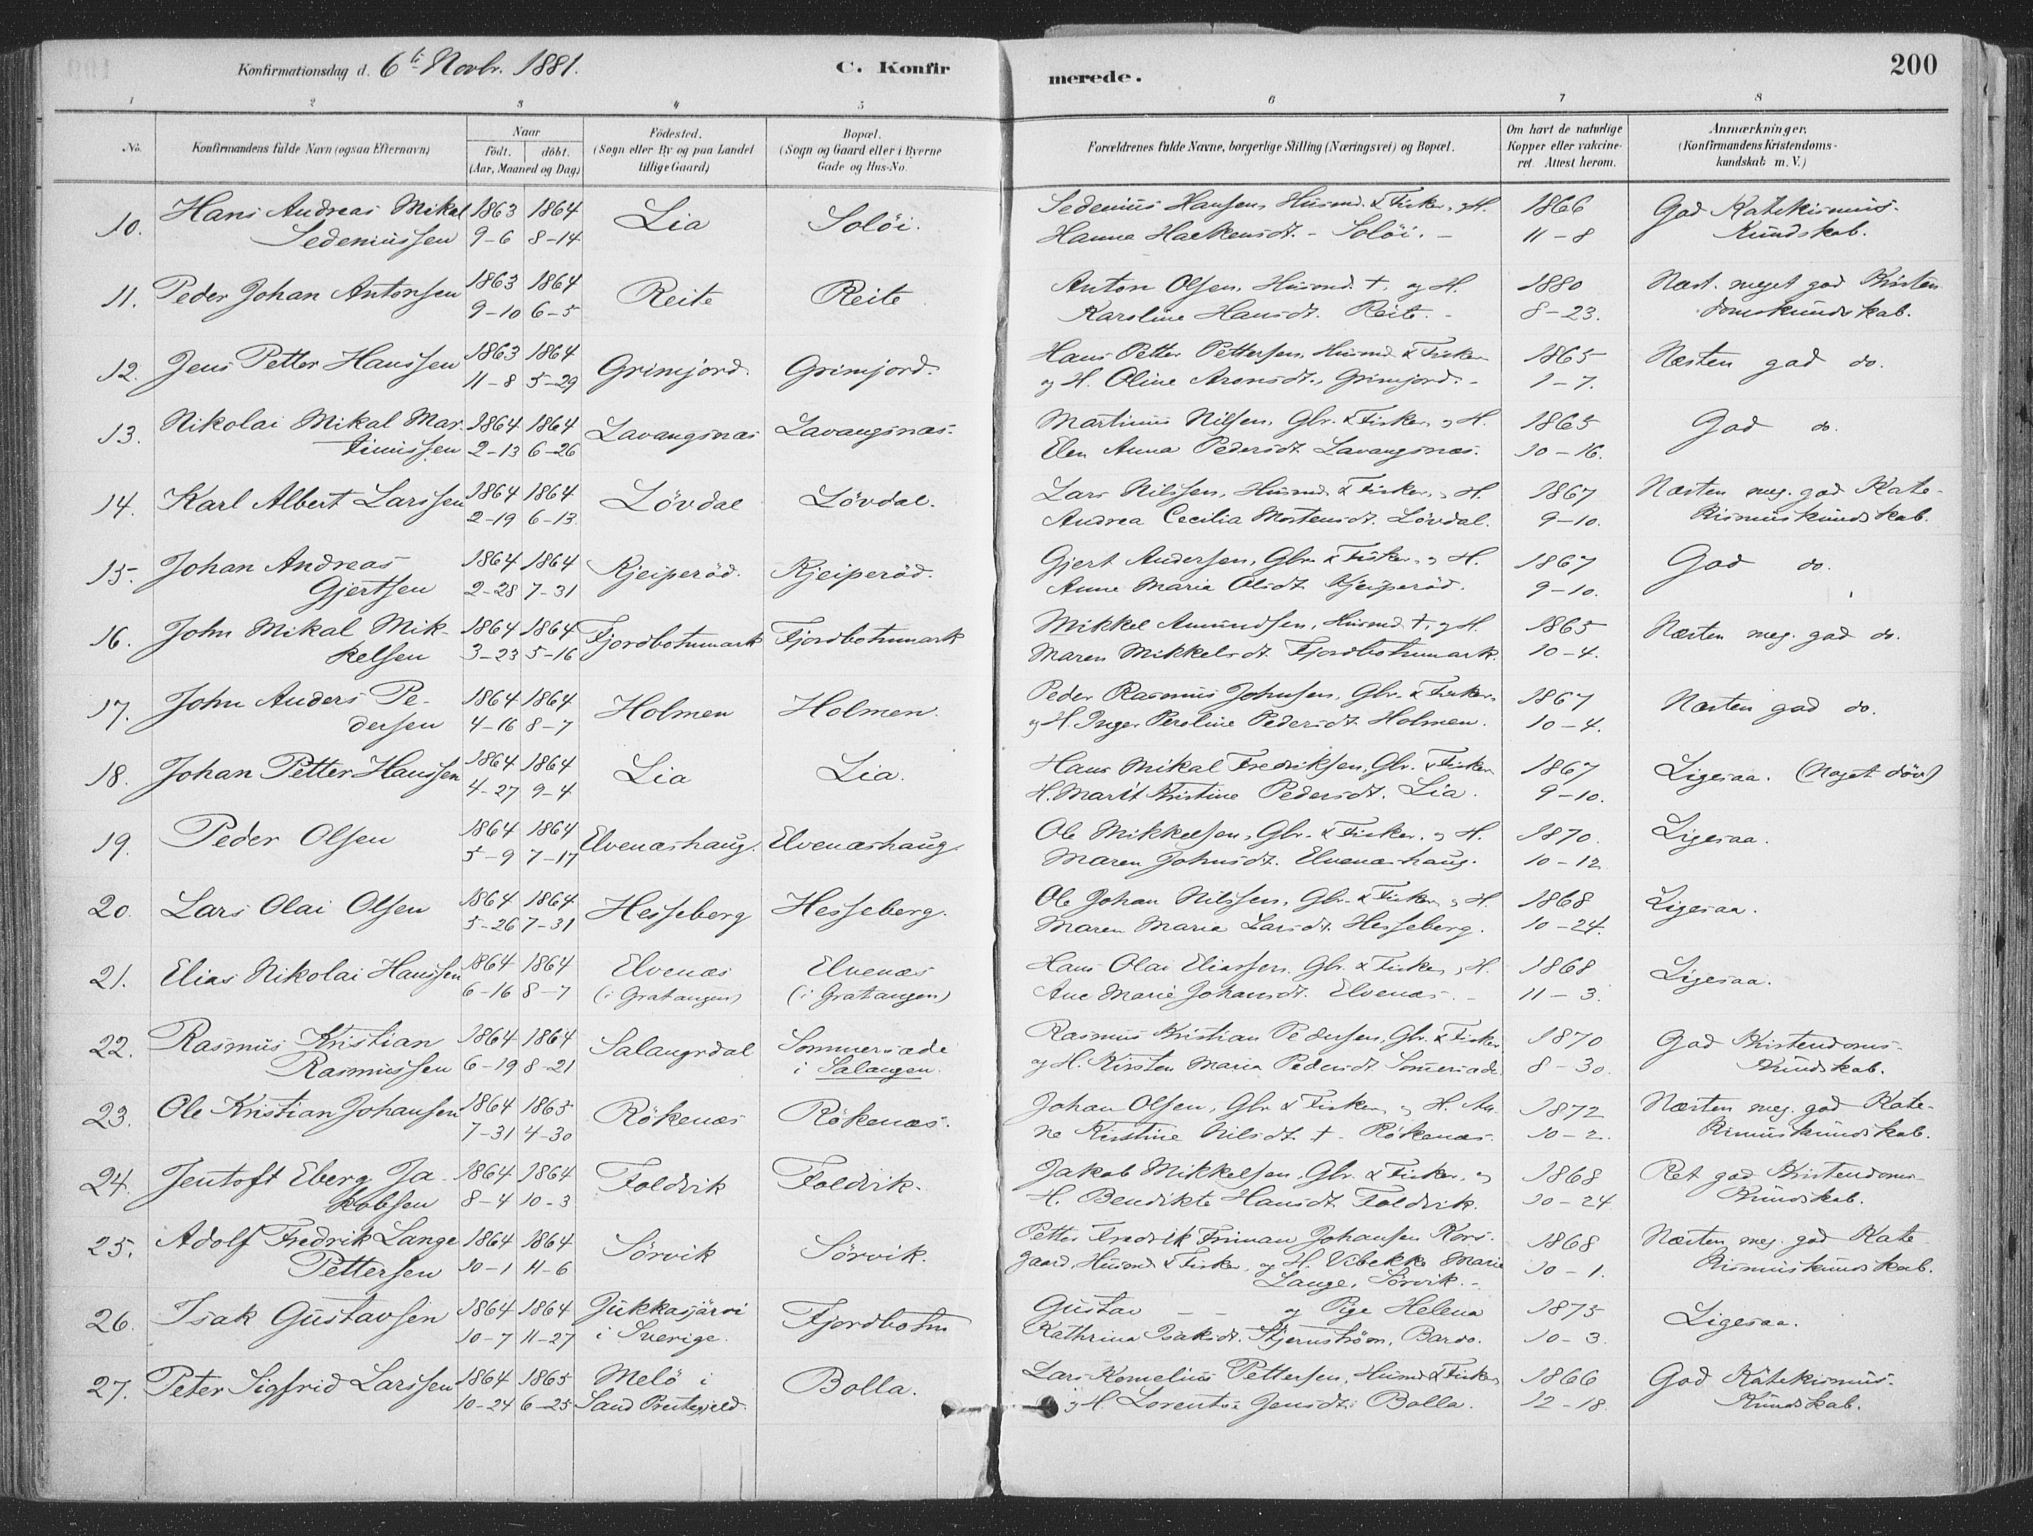 Konfirmationsdag d. 6te Novbr. 1881.
C. Konfirmerede.
200
1 2 3 4 5 6 7 8
No.
Konfirmandens fulde Navn (ogsaa Efternavn)
Naar
födt. döbt.
(Aar, Maaned og Dag)
Födested.
(Sogn eller By og paa Landet
tillige Gaard)
Bopæl.
(Sogn og Gaard eller i Byerne
Gade og Hus-No.
Forældrenes fulde Navne, borgerlige Stilling (Næringsvei) og Bopæl.
Om havt de naturlige
Kopper eller vakcineret. Attest herom.
Anmærkninger.
(Konfirmandens Kristendoms-
kundskab m. V.)
10. Hans Andreas Mikal 1863 1864 Lia Solöi. Sedenius Hansen, Husmd. & Fisker, og H. 1866 God Katekismus-
Sedeniussen 9-6 8-14 Hanna Haekensdt. - Solöi. - 11-8 Kundskab.
11. Peder Johan Antonsen 1863 1864 Reite Reite Anton Olsen, Husmd. †, og H. 1880 Næst. meget god Kristen
9-10 6-5 Karoline Hansdt. Reite. - 8-23. domskundskab.
12. Jens Petter Hanssen 1863 1864 Grimjord. Grimjord. Hans Petter Pettersen, Husmd & Fisker 1865 Næsten god do.
11-8 5-29 og H. Oline Aronsdt., Grimjord. - 1-7.
13. Nikolai Mikal Mar- 1864 1864 Lavangsnæs Lavangsnæs. Martinus Nilsen, Gbr. & Fisker, og H. 1865 God do.
tinussen 2-13 6-26 Elen Anna Pedersdt. Lavangsnæs. 10-16.
14. Karl Albert Larssen 1864 1864 Lövdal Lövdal. Lars Nilssen, Husmd. & Fisker, og H. 1867 Næsten meg. god Kate-
2-19 6-13. Andrea Cecilia Mortensdt. Lövdal. 9-10. kismuskundskab.
15. Johan Andreas 1864 1864 Kjeiperöd. Kjeiperöd. Gjert Andersen, Gbr. & Fisker, og H. 1867 God do.
Gjertsen 2-28 7-31 Anne Maria Olsdt. Kjeiperöd. 9-10.
16. John Mikal Mik- 1864 1864 Fjordbotnmark Fjordbotnmark Mikkel Amundsen, Husmd. †, og H. 1865 Næsten meg. god do.
kelsen 3-23 5-16 Maren Mikkelsdt. Fjordbotnmark. 10-4.
17. John Anders Pe- 1864 1864 Holmen Holmen. Peder Rasmus Johnsen, Gbr. & Fisker, 1867 Næsten god do.
dersen 4-16 8-7 og H. Inger Peroline Pedersdt. Holmen. 10-4.
18. Johan Petter Hanssen 1864 1864 Lia Lia. Hans Mikal Fredriksen, Gbr. & Fisker 1867 Ligesaa. (Noget döv)
4-27 9-4 H. Marit Kristine Pedersdt. Lia. 9-10.
19. Peder Olsen 1864 1864 Elvenæshaug. Elvenæshaug. Ole Mikkelsen, Gbr. & Fisker, og H. 1870. Ligesaa.
5-9 7-17 Maren Johnsdt. Elvenæshaug. 10-12
20. Lars Olai Olsen 1864 1864 Hesseberg Hesseberg. Ole Johan Nilssen, Gbr. & Fisker, og H. 1868 Ligesaa.
5-26 7-31 Maren Maria Larsdt. Hesseberg. 10-24.
21. Elias Nikolai Hanssen 1864 1864 Elvenæs Elvenæs Hans Olai Eliassen, Gbr. & Fisker, og H. 1868 Ligesaa.
6-16 8-7 (i Gratangen) (i Gratangen) Ane Marie Johansdt. Elvenæs. - 11-3.
22. Rasmus Kristian 1864 1864 Salangsdal Sommersæde Rasmus Kristian Pedersen, Gbr. & Fisker, 1870 God Kristendoms-
Rasmussen 6-19 8-21 i Salangen. og H. Kirsten Maria Pedersdt Sommersæde 8-30. Kundskab.
23. Ole Kristian Johansen 1864 1865 Rökenæs Rökenæs. Johan Olsen, Gbr & Fisker, og H. An- 1872 Næsten meg. god Kate-
7-31 4-30 ne Kirstine Nilsdt. †. Rökenæs. 10-2. kismuskundskab.
24. Jentoft Eberg Ja- 1864 1864 Foldvik Foldvik. Jakob Mikkelsen, Gbr. & Fisker, og 1868 Ret god Kristendoms-
kobsen 8-4 10-3 H. Bendikte Hansdt. Foldvik. 10-24 Kundskab.
25. Adolf Fredrik Lange 1864 1864 Sörvik Sörvik. Petter Fredrik Friman Johansen Kors- 1868 Næsten meg. god Kate
Pettersen 10-1 11-6 gaard, Husmd & Fisker, og H. Vibekke Marie 10-1. kismuskundskab.
Lange, Sörvik. -
26. Isak Gustavsen 1864 1864 Jukkasjärvi Fjordbotn Gustav - - og Pige Helena 1875 Ligesaa.
10-7 11-27 i Sverige. Kathrina Isaksdt. Stjernström, Bardo. 10-3.
27. Peter Sigfrid Larssen 1864 1865 Melö i Bolla. Lars Kornelius Pettersen, Husmd & Fisker 1866 God Katekismus-
10-24 6-25 Sand Prestegjeld. og H. Lorentse Jensdt. Bolla. 12-18. Kundskab.